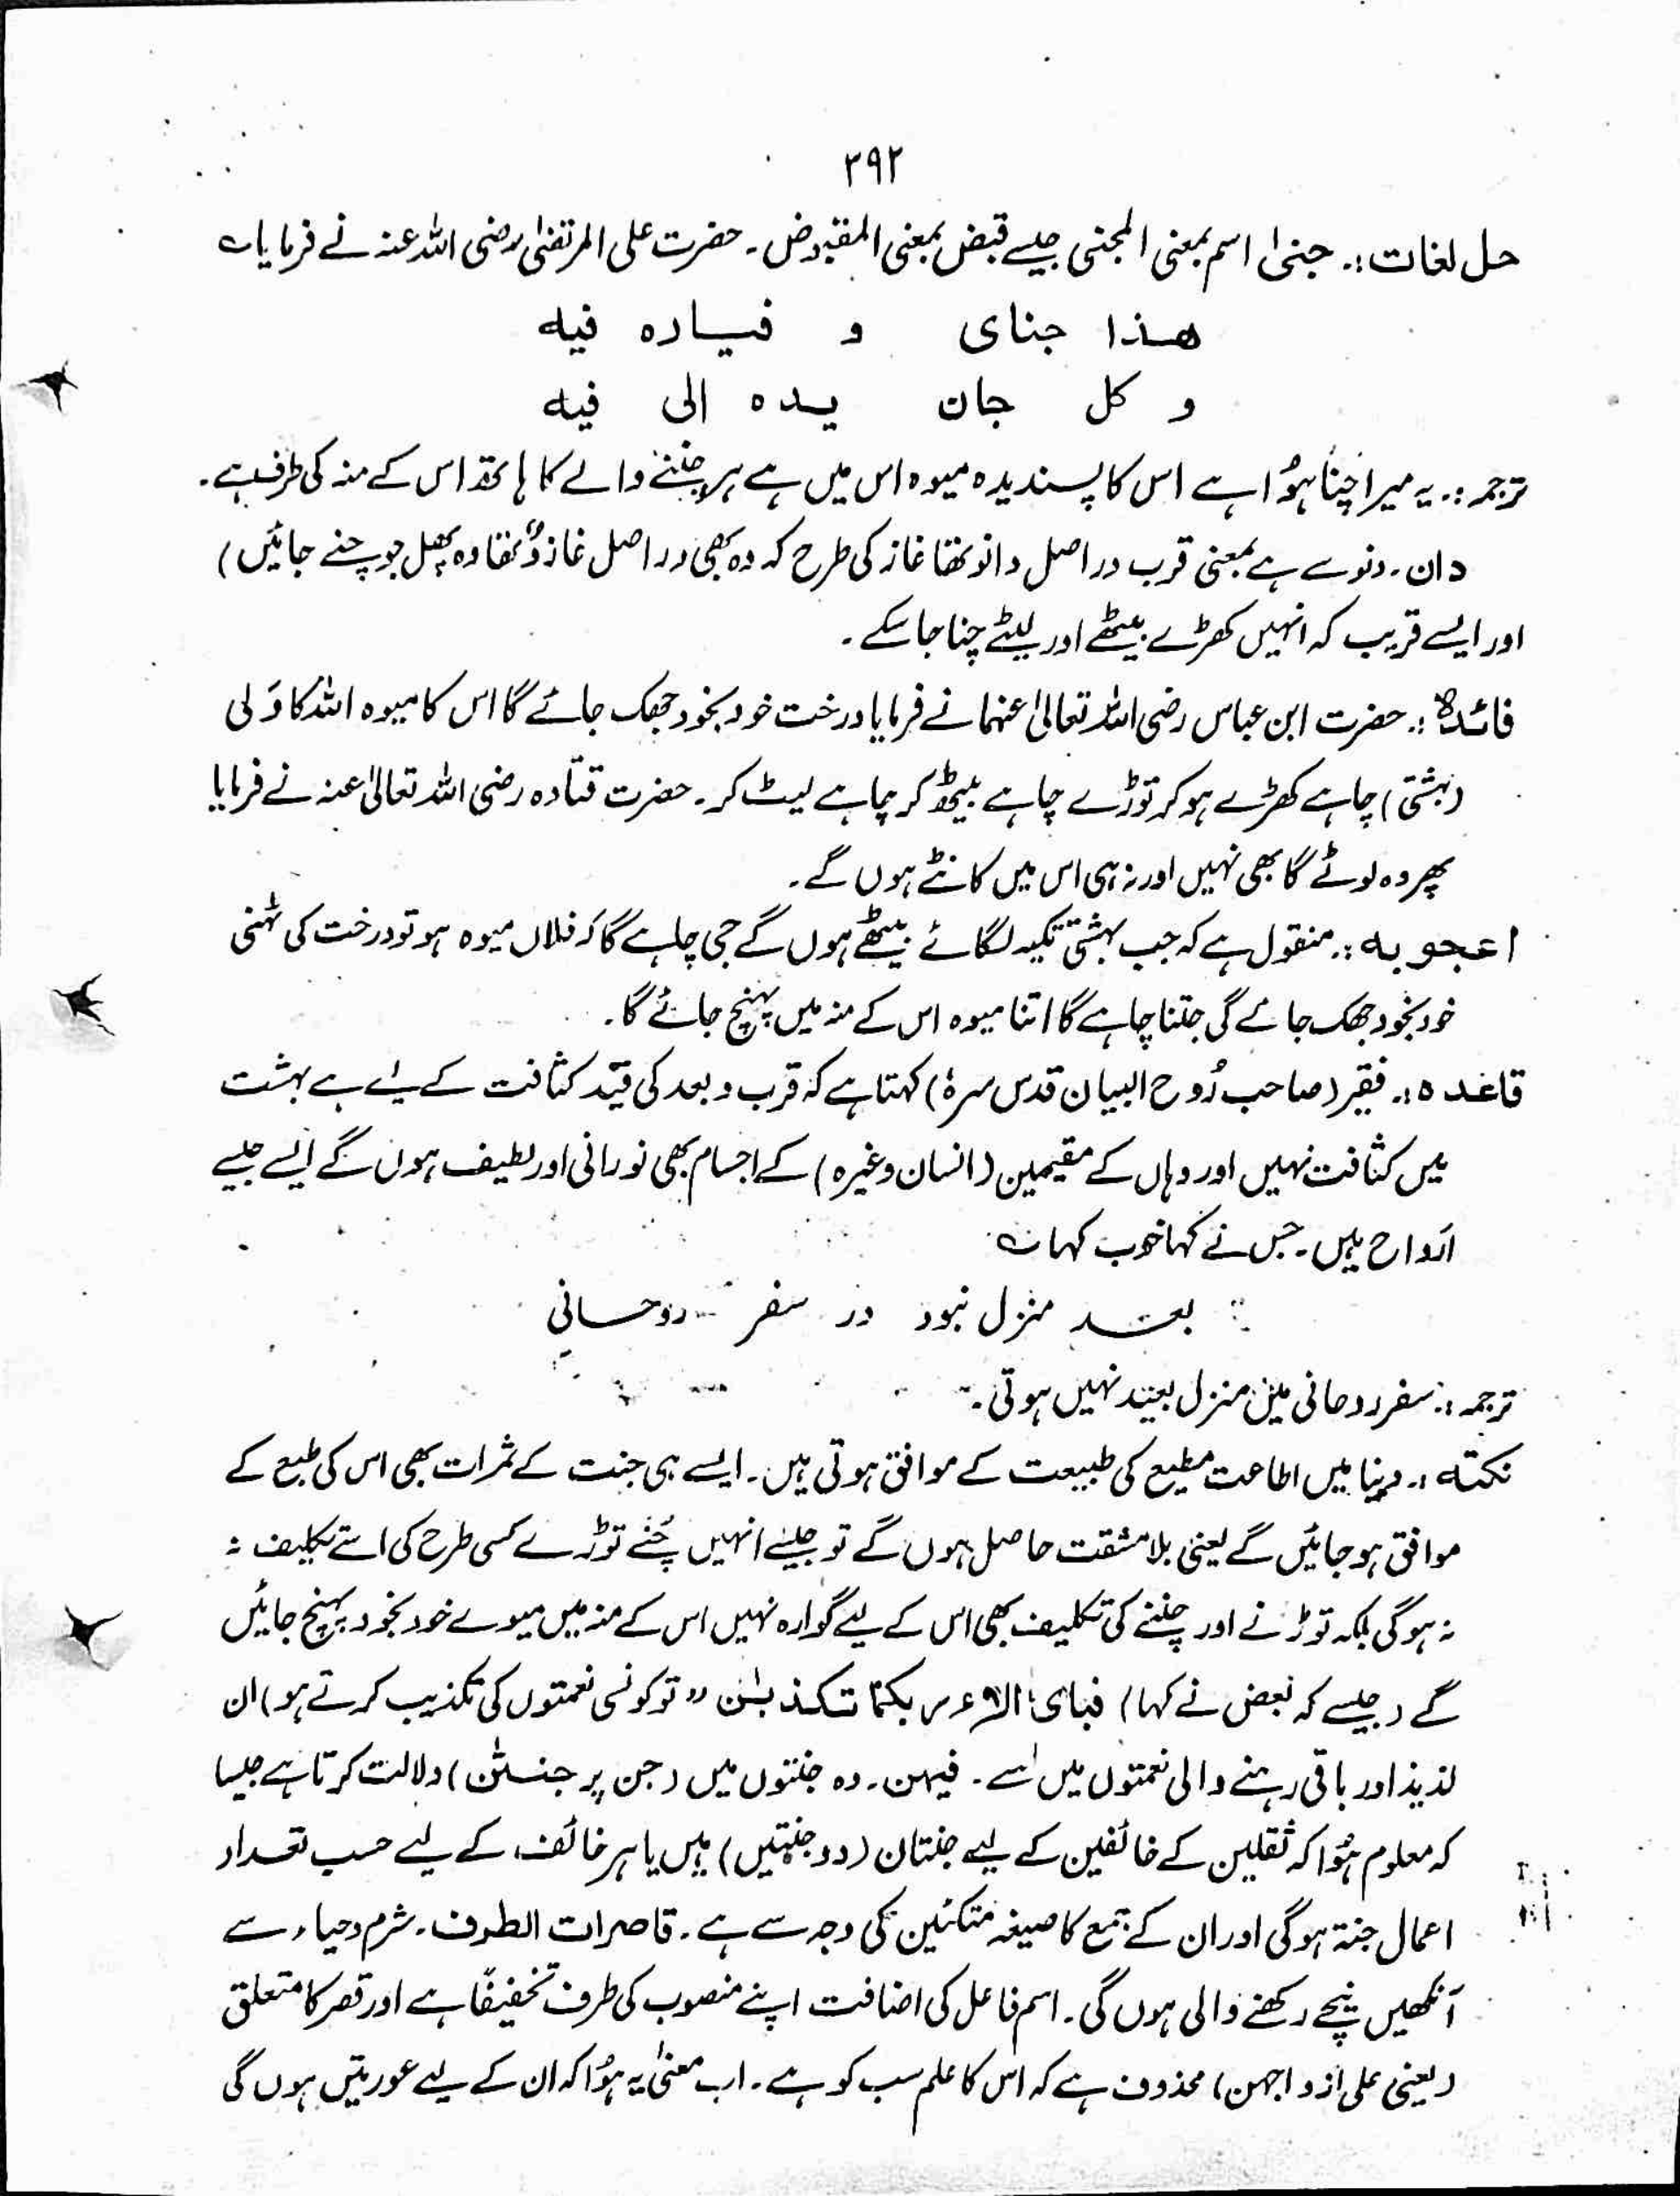 ۲۹۲
حل لغات :. جنیٰ اسم بمعنی المجنی جیسے قبض بمعنی المقبوض ۔ حضرت علی المرتضیٰ رضی اللہ عنہ نے فرمایا ؎
ھذا جنای و خیارہ فیہ
و کل جان یدہ الی فیہ
ترجمہ :. یہ میرا چنا ہوُا ہے اس کا پسندیدہ میوہ اس میں ہے ہر چننے والے کا ہاتھ اس کے منہ کی طرف ہے ۔
دان ۔ دنوسے ہے بمعنی قرب دراصل دانو تھا غاز کی طرح کہ وہ بھی دراصل غازوٌ تھا وہ پھل جو چنے جائیں )
اور ایسے قریب کہ انہیں کھڑے بیٹھے اور لیٹے چنا جا سکے ۔
فائدہ :. حضرت ابن عباس رضی اللہ تعالیٰ عنہما نے فرمایا درخت خود بخود جھک جائے گا اس کا میوہ اللہ کا وَلی
( بہشتی ) چاہے کھڑے ہو کر توڑے چاہے بیٹھ کر چاہے لیٹ کر ۔ حضرت قتادہ رضی اللہ تعالیٰ عنہ نے فرمایا
پھر وہ لوٹے گا بھی نہیں اور نہ ہی اس میں کانٹے ہوں گے ۔
اعجوبہ :. منقول ہے کہ جب بہشتی تکیہ لگائے بیٹھے ہوں گے جی چاہے گا کہ فلاں میوہ ہو تو درخت کی ٹہنی
خود بخود جھک جائے گی جتنا چاہے گا اتنا میوہ اس کے منہ میں پہنچ جائے گا ۔
قاعدہ :. فقیر ( صاحب رُوح البیان قدس سرہٗ ) کہتا ہے کہ قرب و بعد کی قید کثافت کے لیے ہے بہشت
میں کثافت نہیں اور وہاں کے مقیمین ( انسان وغیرہ ) کے اجسام بھی نورانی اور لطیف ہوں گے ایسے جیسے
ارواح ہیں ۔ جس نے کہا خوب کہا ؎
بعد منزل نبود در سفر روحانی
ترجمہ :. سفر روحانی میں منزل بعید نہیں ہوتی ۔
نکتہ :. دنیا میں اطاعت مطیع کی طبیعت کے موافق ہوتی ہیں ۔ ایسے ہی جنت کے ثمرات بھی اس کی طبع کے
موافق ہو جائیں گے یعنی بلا مشقت حاصل ہوں گے تو جیسے انہیں چُنے توڑے کسی طرح کی اسے تکلیف نہ
نہ ہوگی بلکہ توڑنے اور چننے کی تکلیف بھی اس کے لیے گوارہ نہیں اس کے منہ میں میوے خود بخود پہنچ جائیں
گے ( جیسے کہ بعض نے کہا ) فبای الآء ربکما تکذبٰن " تو کونسی نعمتوں کی تکذیب کرتے ہو ) ان
لذیذ اور باقی رہنے والی نعمتوں میں سے ۔ فیہن ۔ وہ جنتوں میں ( جن پر جنتٰن ) دلالت کرتا ہے جیسا
کہ معلوم ہُوا کہ ثقلین کے خائفین کے لیے جنتان ( دو جنتیں ) ہیں یا ہر خائف کے لیے حسب تعداد
اعمال جنۃ ہوگی اور ان کے جمع کا صیغہ متکئین کی وجہ سے ہے ۔ قاصرات الطرف ۔ شرم و حیاء سے
آنکھیں نیچے رکھنے والی ہوں گی ۔ اسم فاعل کی اضافت اپنے منصوب کی طرف تخفیفًا ہے اور قصر کا متعلق
( یعنی علی ازواجہن ) محذوف ہے کہ اس کا علم سب کو ہے ۔ اب معنیٰ یہ ہُوا کہ ان کے لیے عورتیں ہوں گی